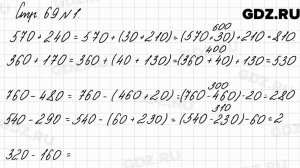 GDZ.RU
Стр. 69 №1.
600
570 + 240 = 570 + (30 + 210) = (570 + 30) + 210 = 810
400
360 + 170 = 360 + (40 + 130) = (360 + 40) + 130 = 530
300
760 - 480 = 760 - (460 + 20) = (760 - 460) - 20 = 280
310
540 - 290 = 540 - (60 + 230) = (540 - 230) - 60 = 2
320 - 160 =
GDZ.RU